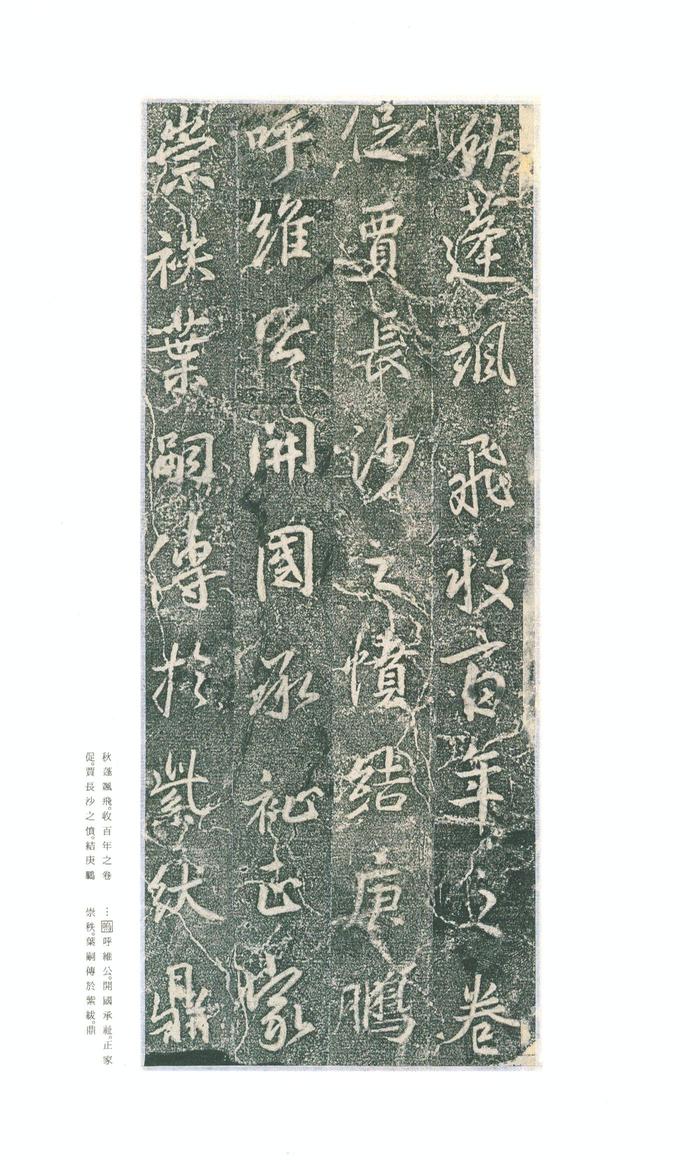 秋蓬颯飛收百年之卷
促賈長沙之憤結庚鵬
呼維公開國承祉正家
崇秩葉嗣傳於紫紱鼎
秋蓬颯飛。收百年之卷
促。賈長沙之憤。結庚鵩
…嗚呼維公。開國承祉。正家
崇秩。葉嗣傳於紫紱。鼎